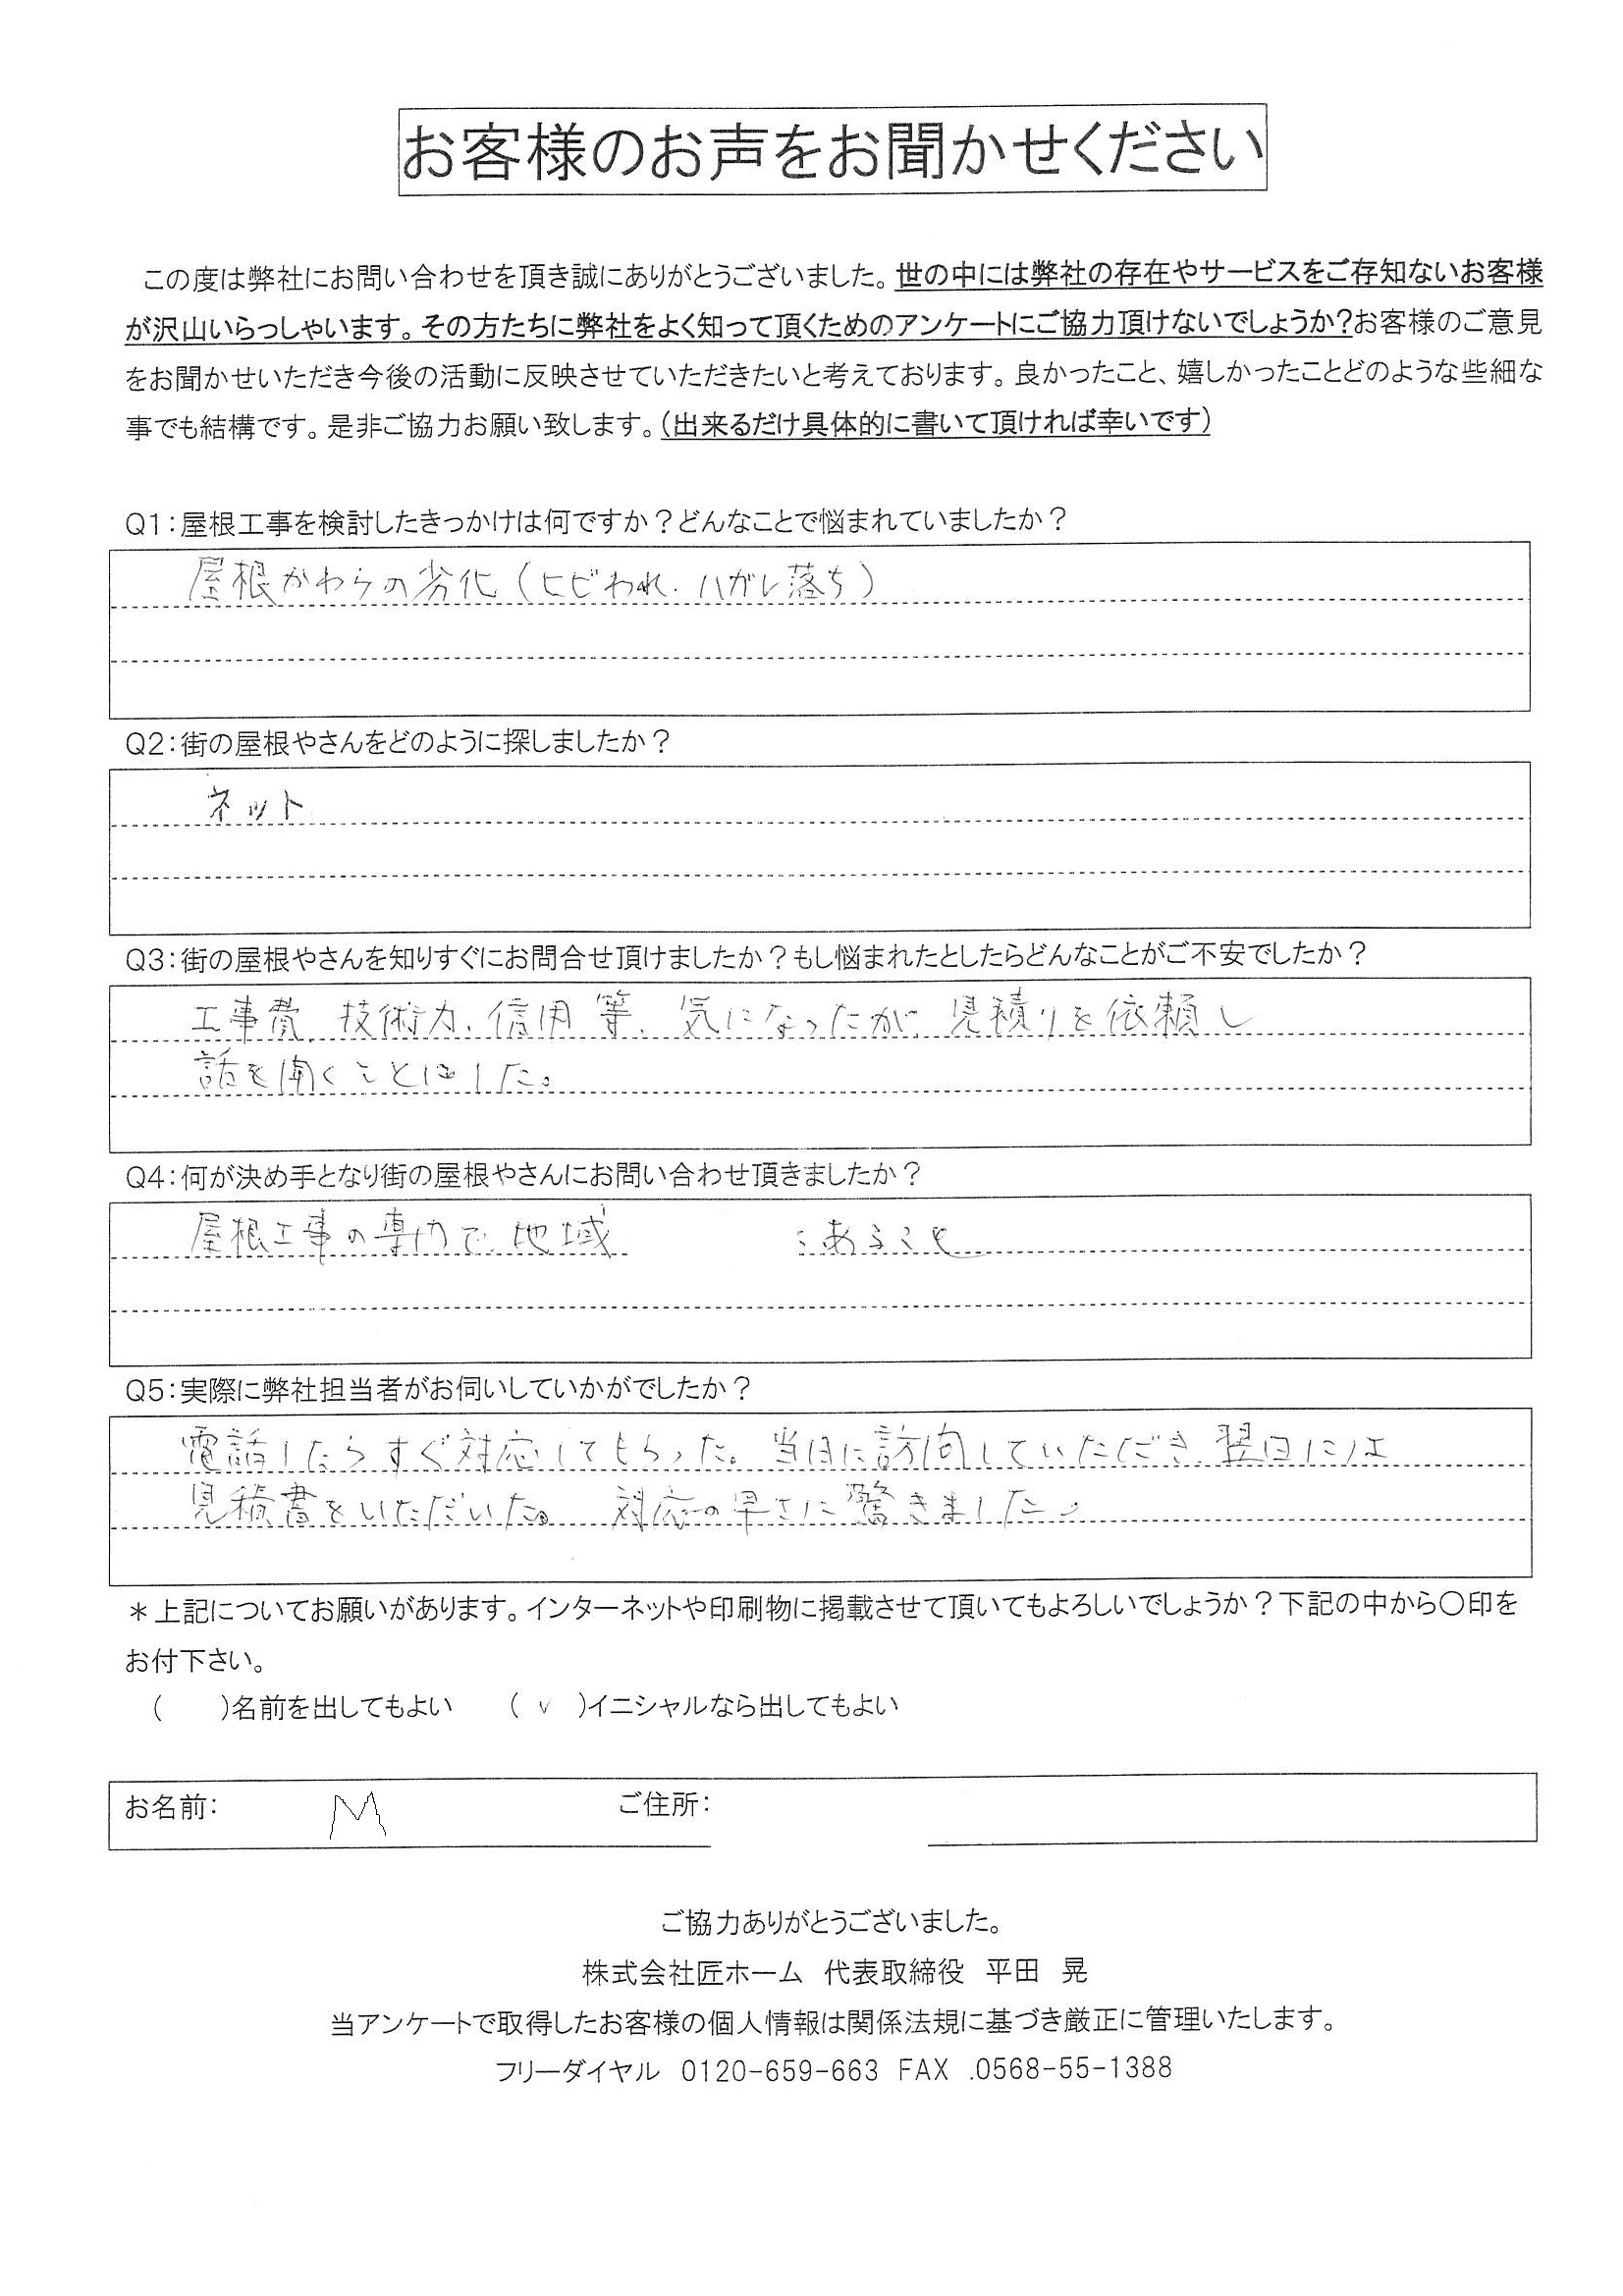 お客様のお声をお聞かせください
この度は弊社にお問い合わせを頂き誠にありがとうございました。世の中には弊社の存在やサービスをご存知ないお客様
が沢山いらっしゃいます。その方たちに弊社をよく知って頂くためのアンケートにご協力頂けないでしょうか?お客様のご意見
をお聞かせいただき今後の活動に反映させていただきたいと考えております。良かったこと、嬉しかったことどのような些細な
事でも結構です。是非ご協力お願い致します。(出来るだけ具体的に書いて頂ければ幸いです)
Q1:屋根工事を検討したきっかけは何ですか?どんなことで悩まれていましたか?
屋根かわらの劣化(ヒビわれ.ハガレ落ち)
Q2:街の屋根やさんをどのように探しましたか?
ネット
Q3:街の屋根やさんを知りすぐにお問合せ頂けましたか?もし悩まれたとしたらどんなことがご不安でしたか?
工事費、技術力、信用等、気になったが、見積りを依頼し
話を聞くことにした。
Q4:何が決め手となり街の屋根やさんにお問い合わせ頂きましたか?
屋根工事の専門で、地域 にあること
Q5:実際に弊社担当者がお伺いしていかがでしたか?
電話したらすぐ対応してもらった。当日に訪問していただき、翌日には
見積書をいただいた。 対応の早さに驚きました。
＊上記についてお願いがあります。インターネットや印刷物に掲載させて頂いてもよろしいでしょうか?下記の中から〇印を
お付下さい。
( )名前を出してもよい (v)イニシャルなら出してもよい
お名前: M ご住所:
ご協力ありがとうございました。
株式会社匠ホーム 代表取締役 平田 晃
当アンケートで取得したお客様の個人情報は関係法規に基づき厳正に管理いたします。
フリーダイヤル 0120-659-663 FAX .0568-55-1388